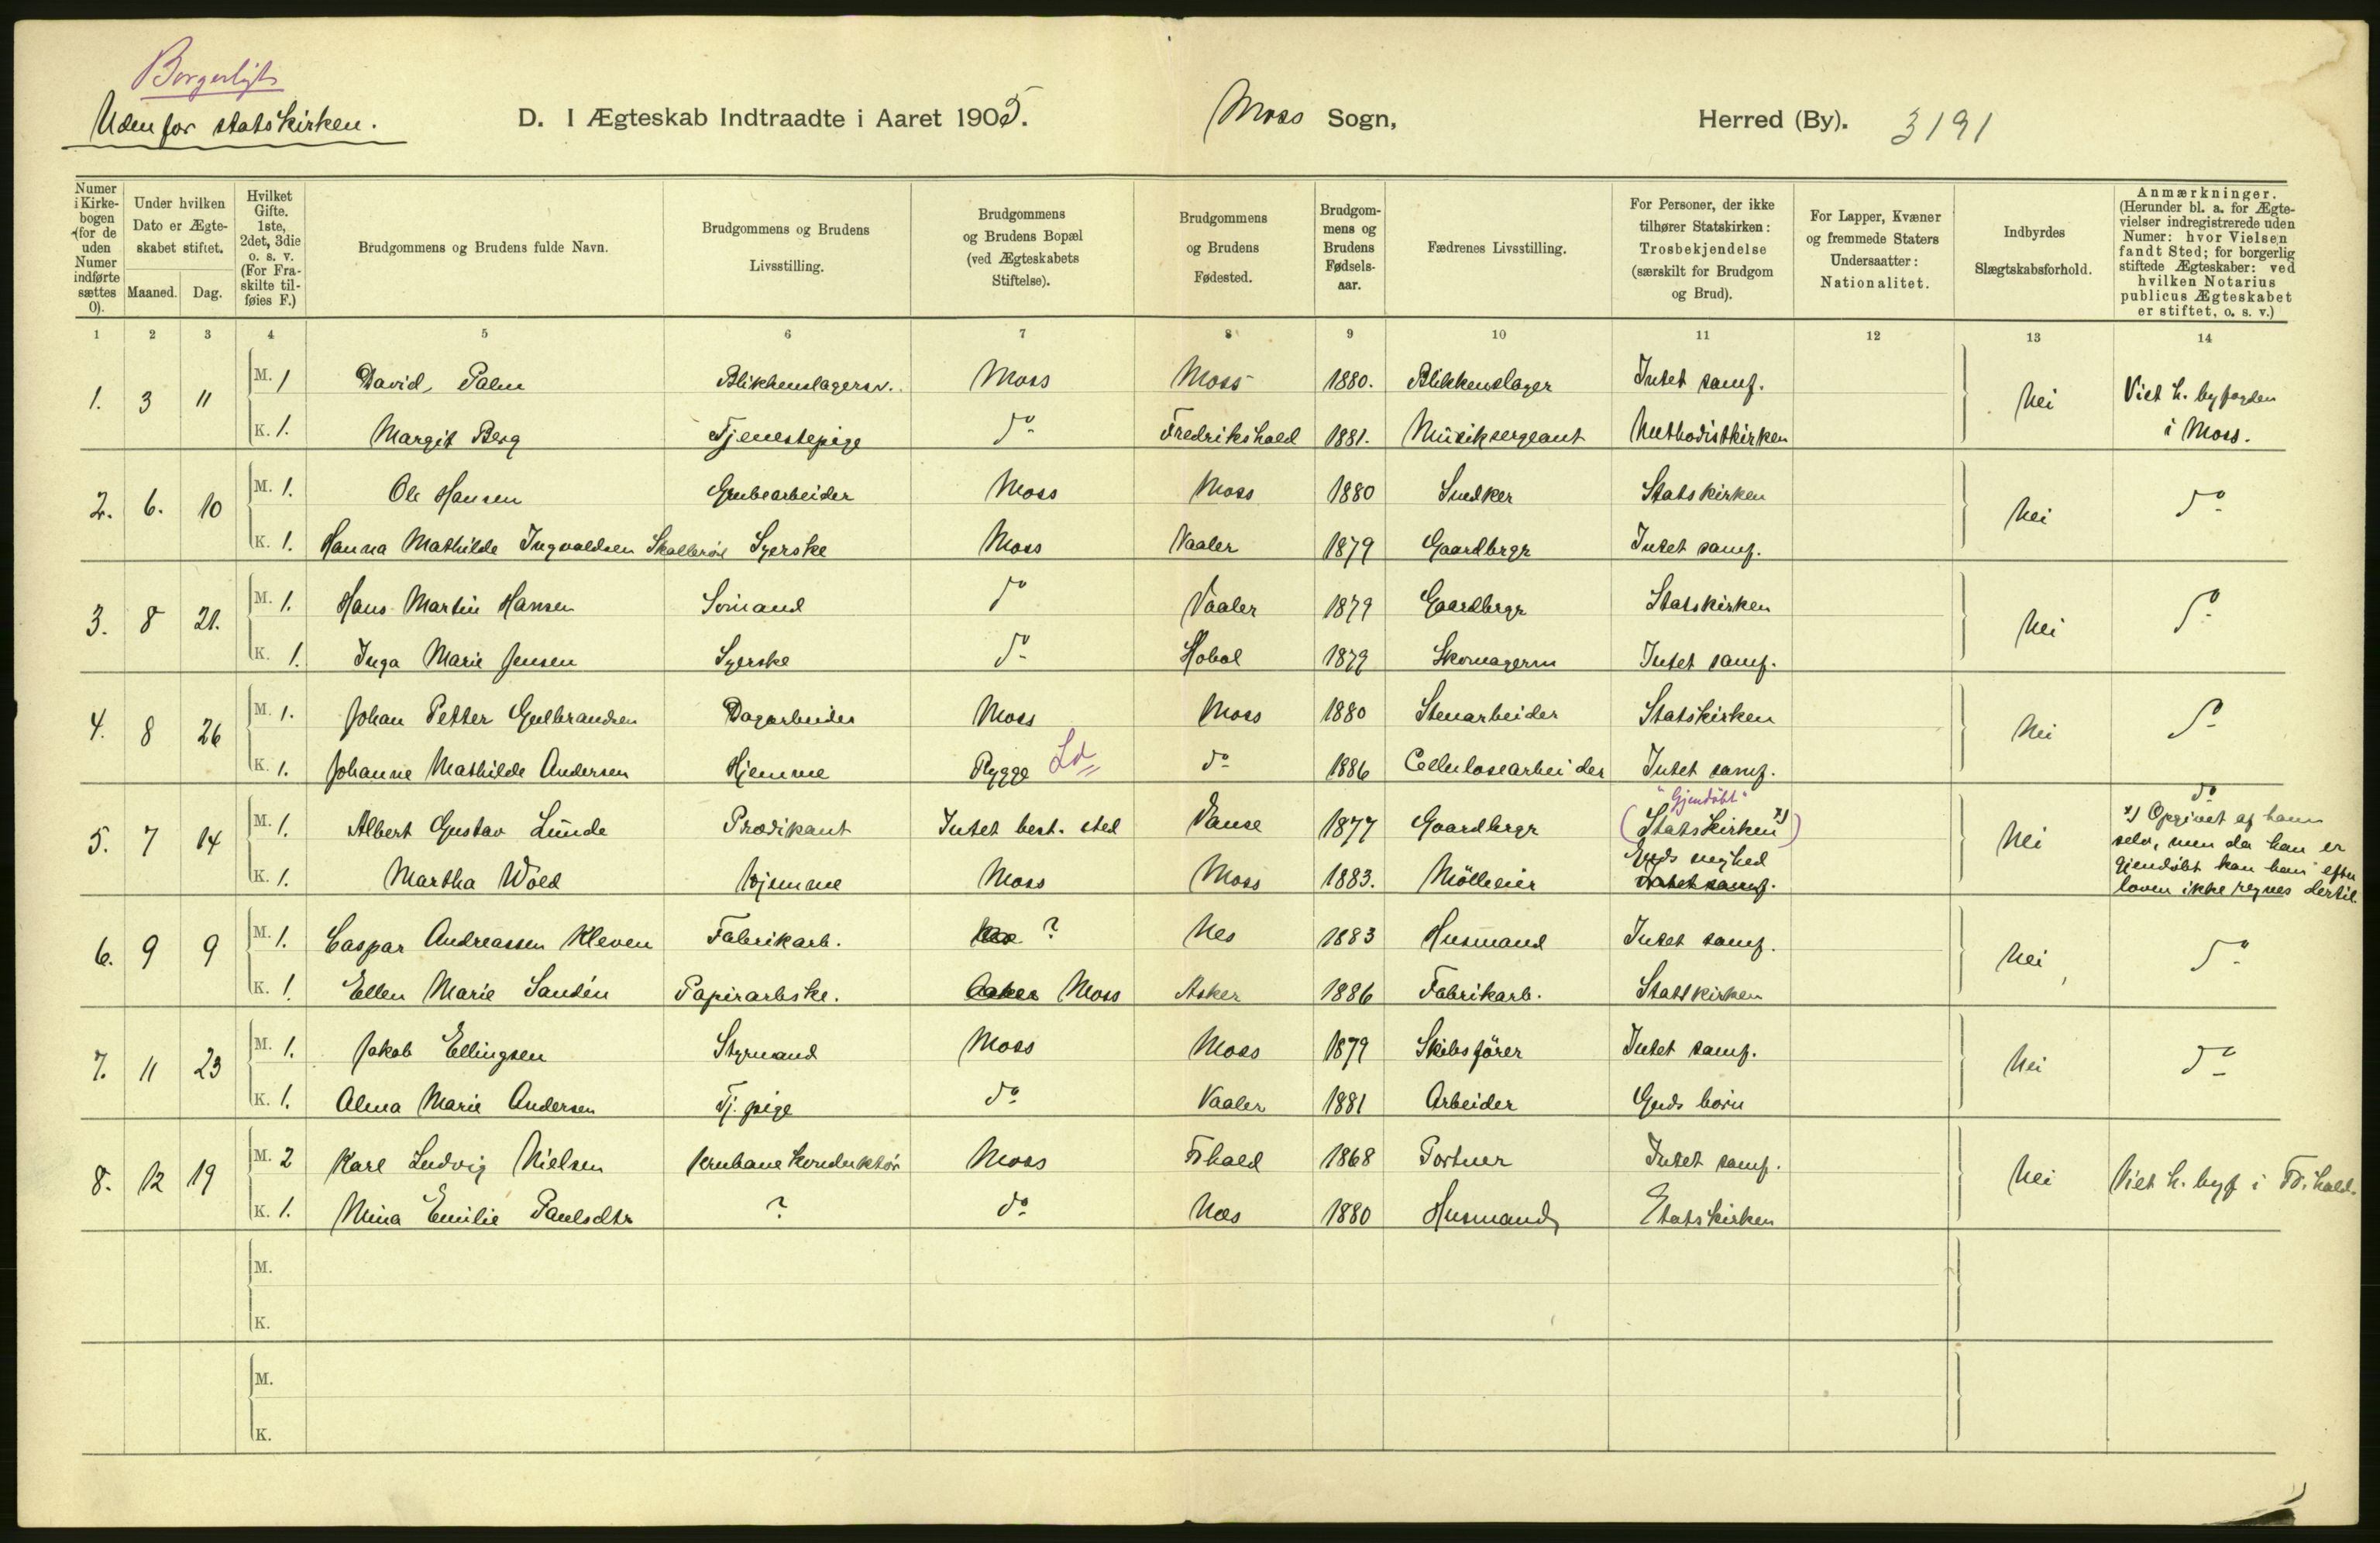 Borgerligt
Udenfor statskirken.
D. I Ægteskab Indtraadte i Aaret 1905. Moss Sogn, Herred (By). 3191
Numer i Kirkebogen (for de uden Numer indførte sættes 0).
Under hvilken Dato er Ægteskabet stiftet.
Maaned. Dag.
Hvilket Gifte. 1ste, 2det, 3die o. s. v. (For Fraskilte tilføies F.)
Brudgommens og Brudens fulde Navn.
Brudgommens og Brudens Livsstilling.
Brudgommens og Brudens Bopæl (ved Ægteskabets Stiftelse).
Brudgommens og Brudens Fødested.
Brudgommens og Brudens Fødselsaar.
Fædrenes Livsstilling.
For Personer, der ikke tilhører Statskirken: Trosbekjendelse (særskilt for Brudgom og Brud).
For Lapper, Kvæner og fremmede Staters Undersaatter: Nationalitet.
Indbyrdes Slægtskabsforhold.
Anmærkninger. (Herunder bl. a. for Ægtevielser indregistrerede uden Numer: hvor Vielsen fandt Sted; for borgerlig stiftede Ægteskaber: ved hvilken Notarius publicus Ægteskabet er stiftet, o. s. v.)
1 2 3 4 5 6 7 8 9 10 11 12 13 14
1. 3 11 M. 1 David Palm Blikkenslagersv. Moss Moss 1880. Blikkenslager Intet samf. Nei Viet h. byfogden i Moss.
K. 1. Margit Berg Tjenestepige do Fredrikshald 1881. Musiksergeant Methodistkirken
2. 6. 10 M. 1. Ole Hansen Grubearbeider Moss Moss 1880 Snedker Statskirken Nei do
K. 1. Hanna Mathilde Ingvaldsen Skallerød Syerske Moss Vaaler 1879 Gaardbrgr Intet samf.
3. 8 21. M. 1. Hans Martin Hansen Sømand do Vaaler 1879 Gaardbrgr Statskirken Nei do
K. 1. Inga Marie Jensen Syerske do Hobøl 1879 Skomagerm Intet samf.
4. 8 26 M. 1. Johan Petter Gulbrandsen Dagarbeider Moss Moss 1880 Stenarbeider Statskirken Nei do
K. 1. Johanne Mathilde Andersen Hjemme Rygge Ld do 1886 Cellulosearbeider Intet samf.
5. 7 14 M. 1. Albert Gustav Lunde Prædikant Intet best. sted Vanse 1877 Gaardbrgr "Gjendøbt" (Statskirken x)) Nei do
x) Opgivet af ham
selv, men da han er
gjendøbt kan han efter
loven ikke regnes dertil
K. 1. Martha Wold Hjemme Moss Moss 1883. Mölleeier Guds menighed Intet samf.
6. 9 9 M. 1. Caspar Andreassen Kleven Fabrikarb. ? Nes 1883 Husmand Intet samf. Nei do
K. 1. Ellen Marie Sandén Papirarbske. Asker Moss Asker 1886 Fabrikarb. Statskirken
7. 11 23 M. 1. Jakob Ellingsen Styrmand Moss Moss 1879 Skibsfører Intet samf. Nei do
K. 1. Alma Marie Andersen Tj. pige do Vaaler 1881 Arbeider Guds børn
8. 12 19 M. 2 Karl Ludvig Nielsen Jernbanekonduktør Moss Fhald 1868 Portner Intet samf. Nei Viet h. byf i Fr.hald.
K. 1. Mina Emilie Paulsdtr ? do Næs 1880 Husmand Statskirken
M.
K.
M.
K.